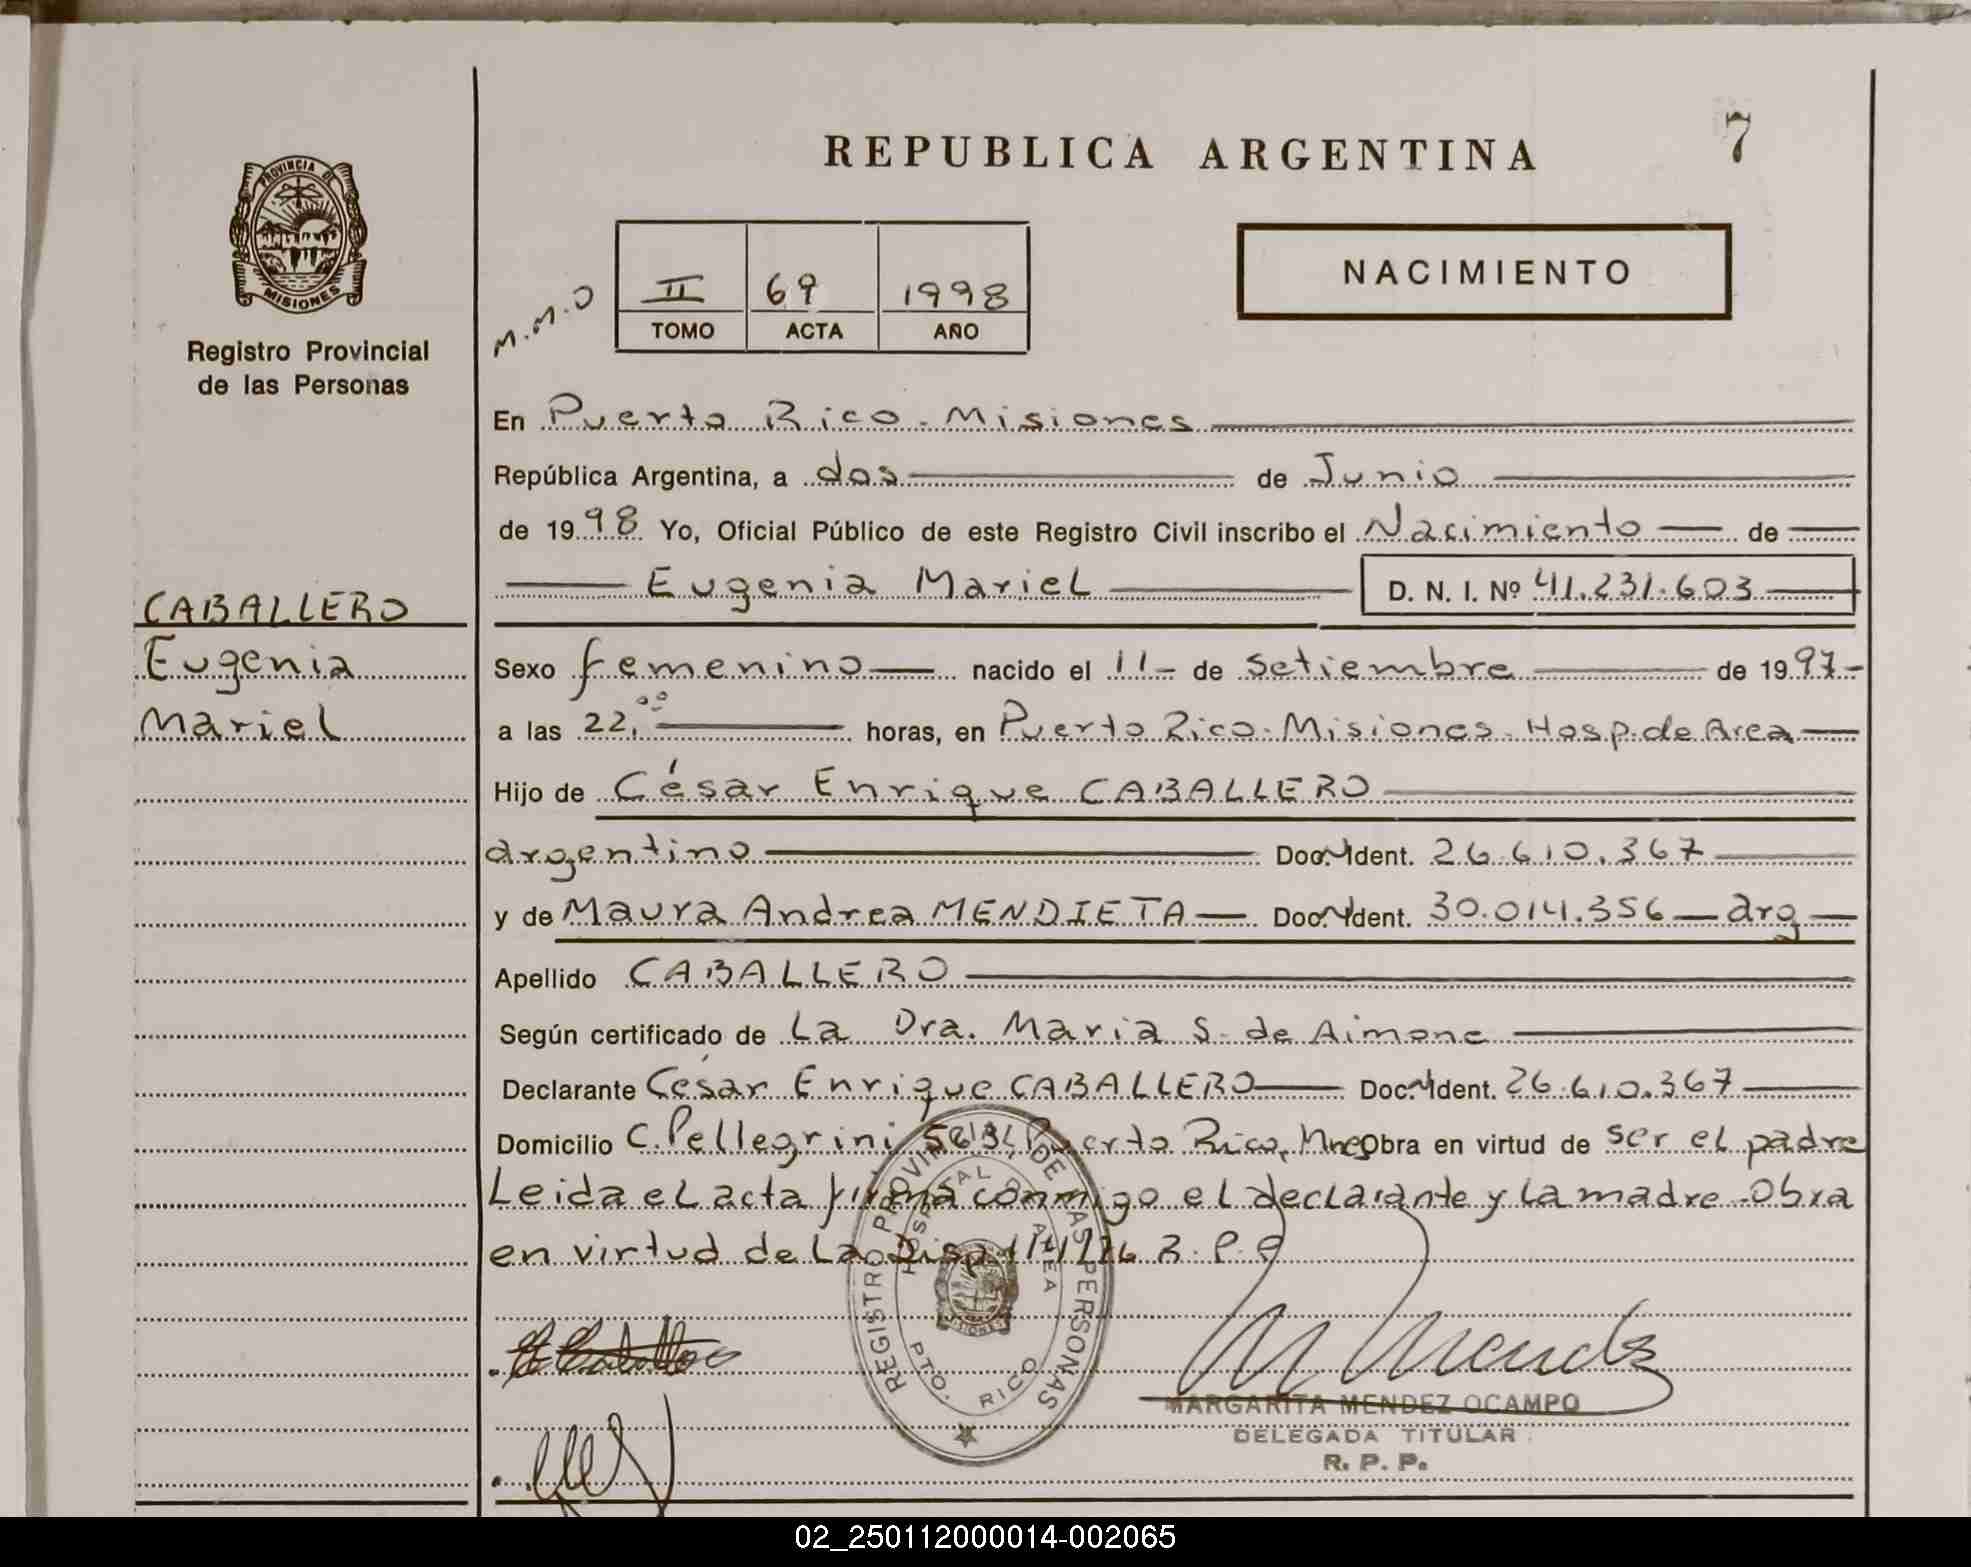 REPUBLICA ARGENTINA
7
PROVINCIA DE
MISIONES
Registro Provincial
de las Personas
M.M.O
II 69 1998
TOMO ACTA AÑO
NACIMIENTO
En Puerto Rico - Misiones
República Argentina, a dos de Junio
de 1998 Yo, Oficial Público de este Registro Civil inscribo el Nacimiento de
Eugenia Mariel D. N. I. Nº 41.231.603
CABALLERO
Eugenia
Mariel
Sexo femenino nacido el 11 - de Setiembre de 1997 -
a las 22,00 horas, en Puerto Rico - Misiones - Hosp. de Area
Hijo de César Enrique CABALLERO
argentino Doc. N Ident. 26.610.367
y de Maura Andrea MENDIETA Doc. N Ident. 30.014.356 - arg
Apellido CABALLERO
Según certificado de La Dra. Maria S. de Aimone
Declarante César Enrique CABALLERO Doc. N Ident. 26.610.367
Domicilio C. Pellegrini Puerto Rico, Mnes Obra en virtud de ser el padre
Leida el acta firma conmigo el declarante y la madre. Obra
en virtud de La Disp R.P.P
REGISTRO PROVINCIAL DE LAS PERSONAS
HOSPITAL DE AREA
PTO. RICO
MISIONES
M Mendez
MARGARITA MENDEZ OCAMPO
DELEGADA TITULAR
R. P. P.
02_250112000014-002065